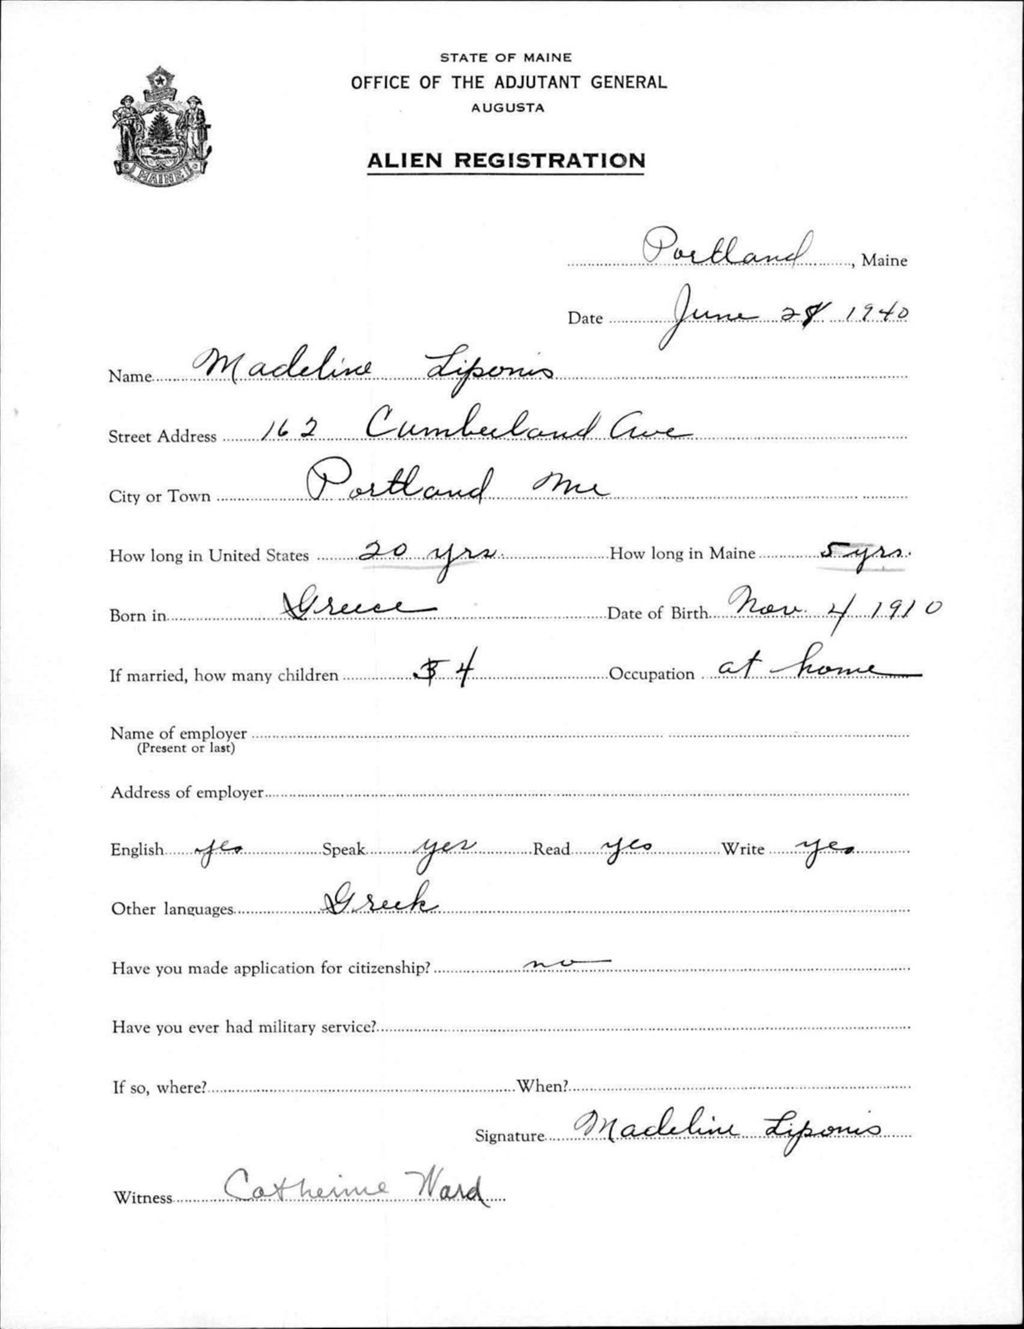 STATE OF MAINE
OFFICE OF THE ADJUTANT GENERAL
AUGUSTA
ALIEN REGISTRATION
MAINE
Portland, Maine
Date June 28 1940
Name Madeline Liponis
Street Address 162 Cumberland Ave
City or Town Portland Me
How long in United States 20 yrs. How long in Maine 5 yrs.
Born in Greece Date of Birth Nov. 4 1910
If married, how many children 4 Occupation at home
Name of employer
(Present or last)
Address of employer
English yes Speak yes Read yes Write yes
Other languages Greek
Have you made application for citizenship? no
Have you ever had military service?
If so, where? When?
Signature Madeline Liponis
Witness Catherine Ward